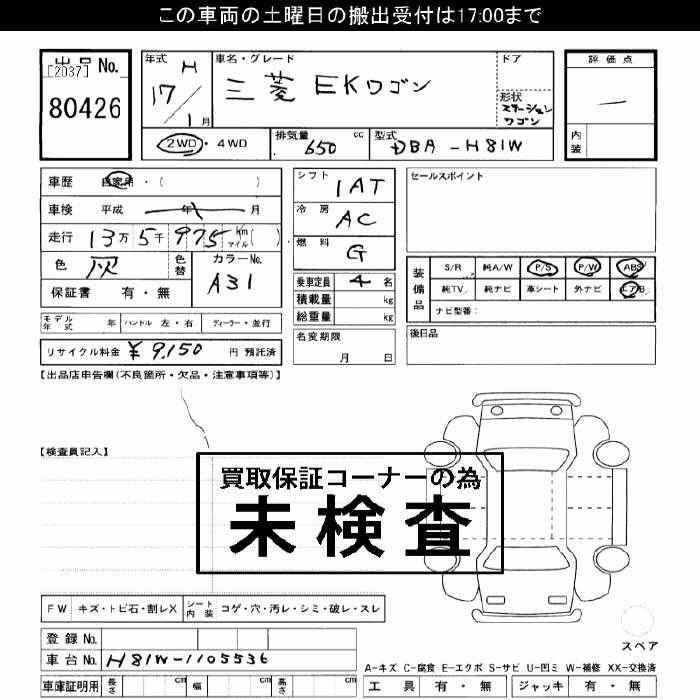 この車両の土曜日の搬出受付は17:00まで
出品No.
[2037]
80426
年式 H 17/1月
車名・グレード 三菱 EKワゴン
ドア
形状 ステーションワゴン
2WD・4WD
排気量 650 cc
型式 DBA-H81W
評価点
—
内装
車歴 自家用・( )
車検 平成 年 月
走行 13万5千975 km マイル( )
色 灰
色替
カラーNo. A31
保証書 有・無
モデル年式 年 ハンドル 左・右 ディーラー・並行
リサイクル料金 ¥9,150 円 預託済
シフト 1AT
冷房 AC
燃料 G
乗車定員 4 名
積載量 kg
総重量 kg
名変期限 月 日
セールスポイント
装備品
S/R 純A/W P/S P/W ABS
純TV 純ナビ 革シート 外ナビ エアB
ナビ型番:
後日品
【出品店申告欄(不良箇所・欠品・注意事項等)】
【検査員記入】
買取保証コーナーの為
未検査
FW キズ・トビ石・割レX
シート内装 コゲ・穴・汚レ・シミ・破レ・スレ
登録No.
車台No. H81W-1105536
車庫証明用 長さ cm 幅 cm 高さ cm
スペア
A-キズ C-腐食 E-エクボ S-サビ U-凹ミ W-補修 XX-交換済
工具 有・無 ジャッキ 有・無